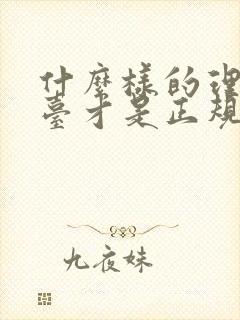 什麼樣的理
臺才是正規
九夜妹